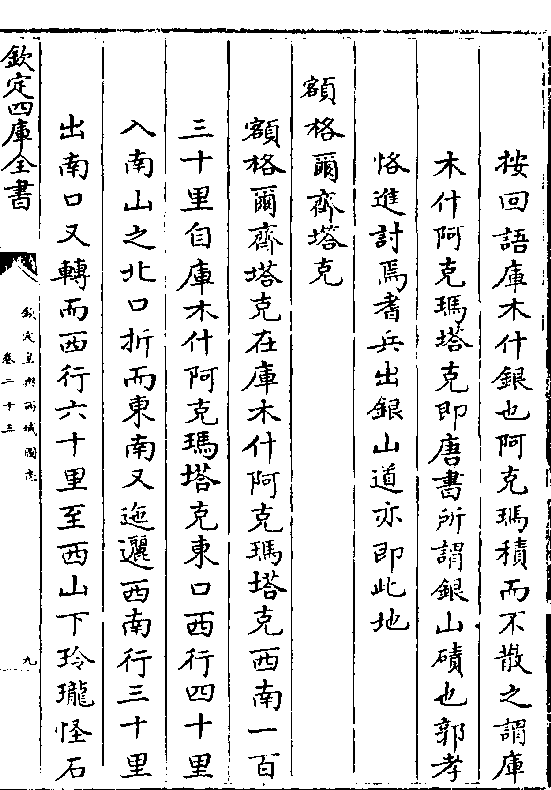 按回語庫木什銀也阿克瑪積而不散之謂庫
木什阿克瑪塔克即唐書所謂銀山磧也郭孝
恪進討焉耆兵出銀山道亦即此地
額格爾齊塔克
額格爾齊塔克在庫木什阿克瑪塔克西南一百
三十里自庫木什阿克瑪塔克東口西行四十里
入南山之北口折而東南又迤邐西南行三十里
出南口又轉而西行六十里至西山下玲瓏怪石
欽定四庫全書
欽定皇輿西域圖志
卷二十三
九